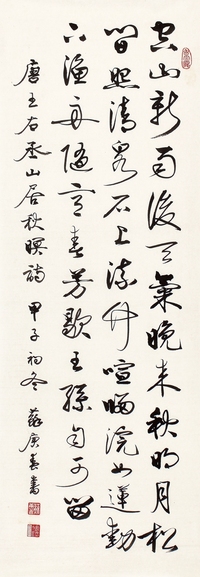 空山新雨後天氣晚來秋明月松
間照清泉石上流竹喧歸浣女蓮動
下漁舟隨意春芳歇王孫自可留
唐王右丞山居秋暝詩 甲子初冬 蘇庚春書